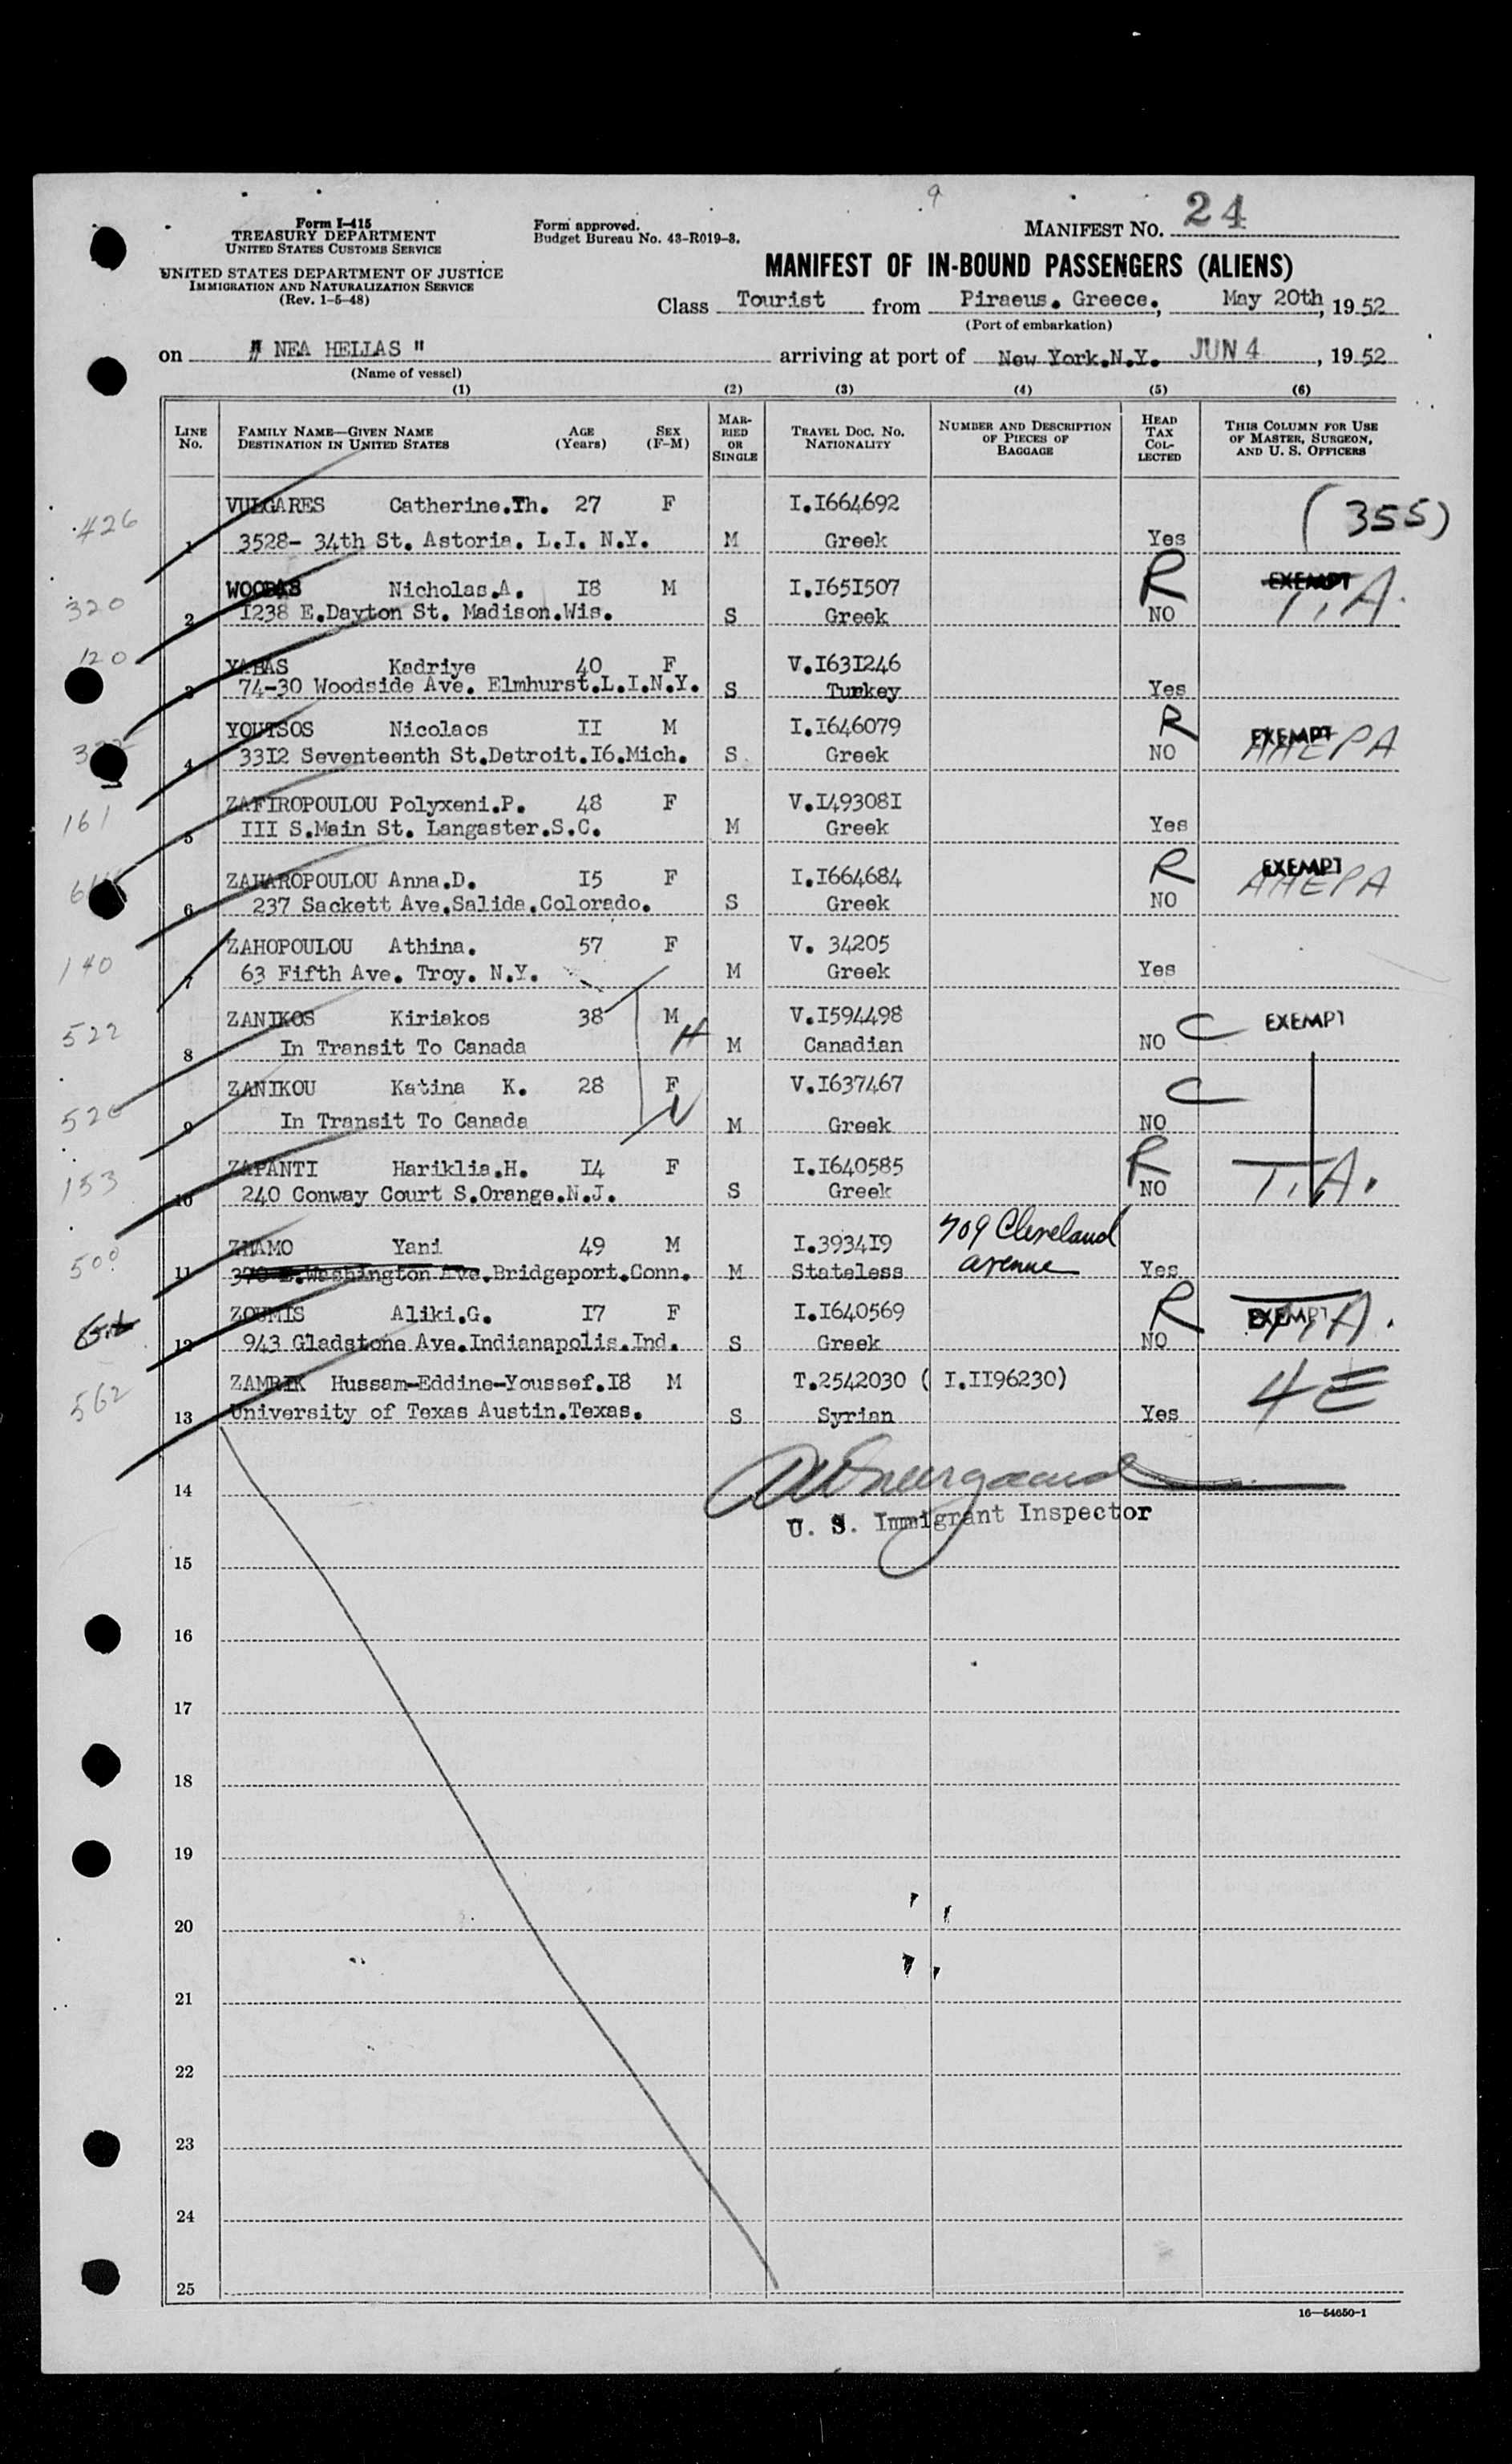 9
Form I-415
TREASURY DEPARTMENT
UNITED STATES CUSTOMS SERVICE
UNITED STATES DEPARTMENT OF JUSTICE
IMMIGRATION AND NATURALIZATION SERVICE
(Rev. 1-5-48)
Form approved.
Budget Bureau No. 43-R019-3.
MANIFEST NO. 24
MANIFEST OF IN-BOUND PASSENGERS (ALIENS)
Class Tourist from Piraeus. Greece., May 20th, 1952
(Port of embarkation)
on " NEA HELLAS " arriving at port of New York.N.Y. JUN 4, 1952
(Name of vessel)
(1) (2) (3) (4) (5) (6)
LINE No. FAMILY NAME—GIVEN NAME DESTINATION IN UNITED STATES AGE (Years) SEX (F-M) MARRIED OR SINGLE TRAVEL DOC. NO. NATIONALITY NUMBER AND DESCRIPTION OF PIECES OF BAGGAGE HEAD TAX COLLECTED THIS COLUMN FOR USE OF MASTER, SURGEON, AND U. S. OFFICERS
426 VULGARES Catherine.Th. 27 F I.I664692 (355)
1 3528- 34th St. Astoria. L.I. N.Y. M Greek Yes
320 Nicholas.A. I8 M I.I651507 R EXEMPT T.A.
2 1238 E.Dayton St. Madison.Wis. S Greek NO
120 YABAS Kadriye 40 F V.I631246
3 74-30 Woodside Ave. Elmhurst.L.I.N.Y. S Turkey Yes
YOUTSOS Nicolaos II M I.I646079 R EXEMPT AHEPA
4 3312 Seventeenth St.Detroit.I6.Mich. S Greek NO
161 ZAFIROPOULOU Polyxeni.P. 48 F V.I49308I
5 III S.Main St. Langaster.S.C. M Greek Yes
ZAHAROPOULOU Anna.D. I5 F I.I664684 R EXEMPT AHEPA
6 237 Sackett Ave.Salida.Colorado. S Greek NO
140 ZAHOPOULOU Athina. 57 F V. 34205
7 63 Fifth Ave. Troy. N.Y. M Greek Yes
522 ZANIKOS Kiriakos 38 M V.I594498 C EXEMPT
8 In Transit To Canada M Canadian NO
ZANIKOU Katina K. 28 F V.I637467 C
9 In Transit To Canada M Greek NO
153 ZAPANTI Hariklia.H. I4 F I.I640585 R T.A.
10 240 Conway Court S.Orange.N.J. S Greek NO
500 Yani 49 M I.3934I9 709 Cleveland avenue
11 370 E.Washington Ave.Bridgeport.Conn. M Stateless Yes
ZOUMIS Aliki.G. I7 F I.I640569 R EXEMPT T.A.
12 943 Gladstone Ave.Indianapolis.Ind. S Greek NO
562 ZAMRIK Hussam-Eddine-Youssef.I8 M T.2542030 ( I.II96230) 4E
13 University of Texas Austin.Texas. S Syrian Yes
14
U. S. Immigrant Inspector
15
16
17
18
19
20
21
22
23
24
25
16—54650-1